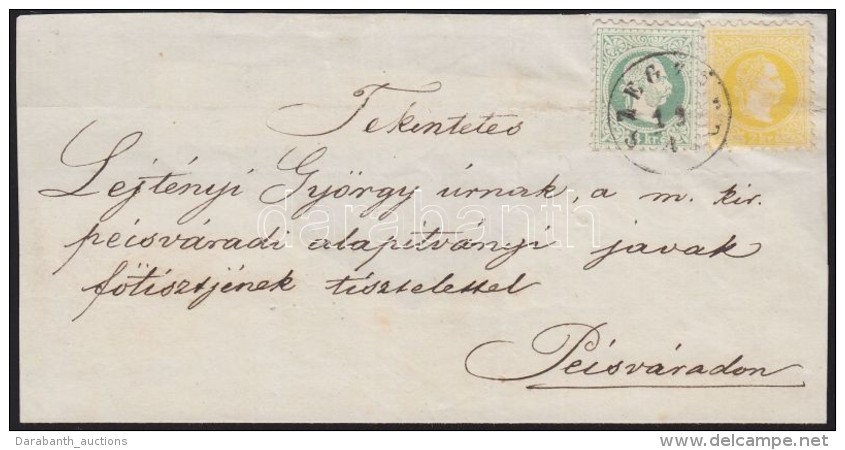 Tekintetes
Lejtényi György úrnak, a m. kir.
pécsváradi alapítványi javak
főtisztjének tisztelettel
Pécsváradon
SZEGZÁRD
darabanth
Darabanth_auctions
http://www.delcampe.net